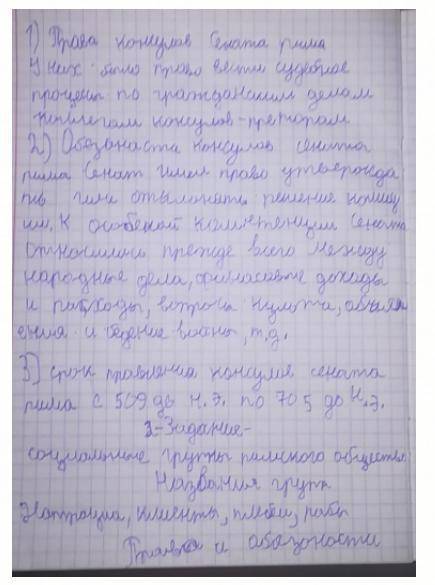 1) Права консулов Сената рима
У них было право вести судебное
процены по гражданским делам
коллегам консулов-преторам
2) Обезаноста консулов сената
рима Сенат имел право утверожда
ть или отклонать решение комиц
ии. К особеной компетенции Сената
относились прежде всего между
народные дела, финасовые доходы
и расходы, вопросы культа, объявл
ения и ведение войны, т.д.
3) срок правления консулов сената
рима с 509 до н.э. по 705 до н.э.
2-Задание-
социальные группы римского общества
Названия групп
Патриции, клиенты, плебеи, рабы
Правва и обезоности